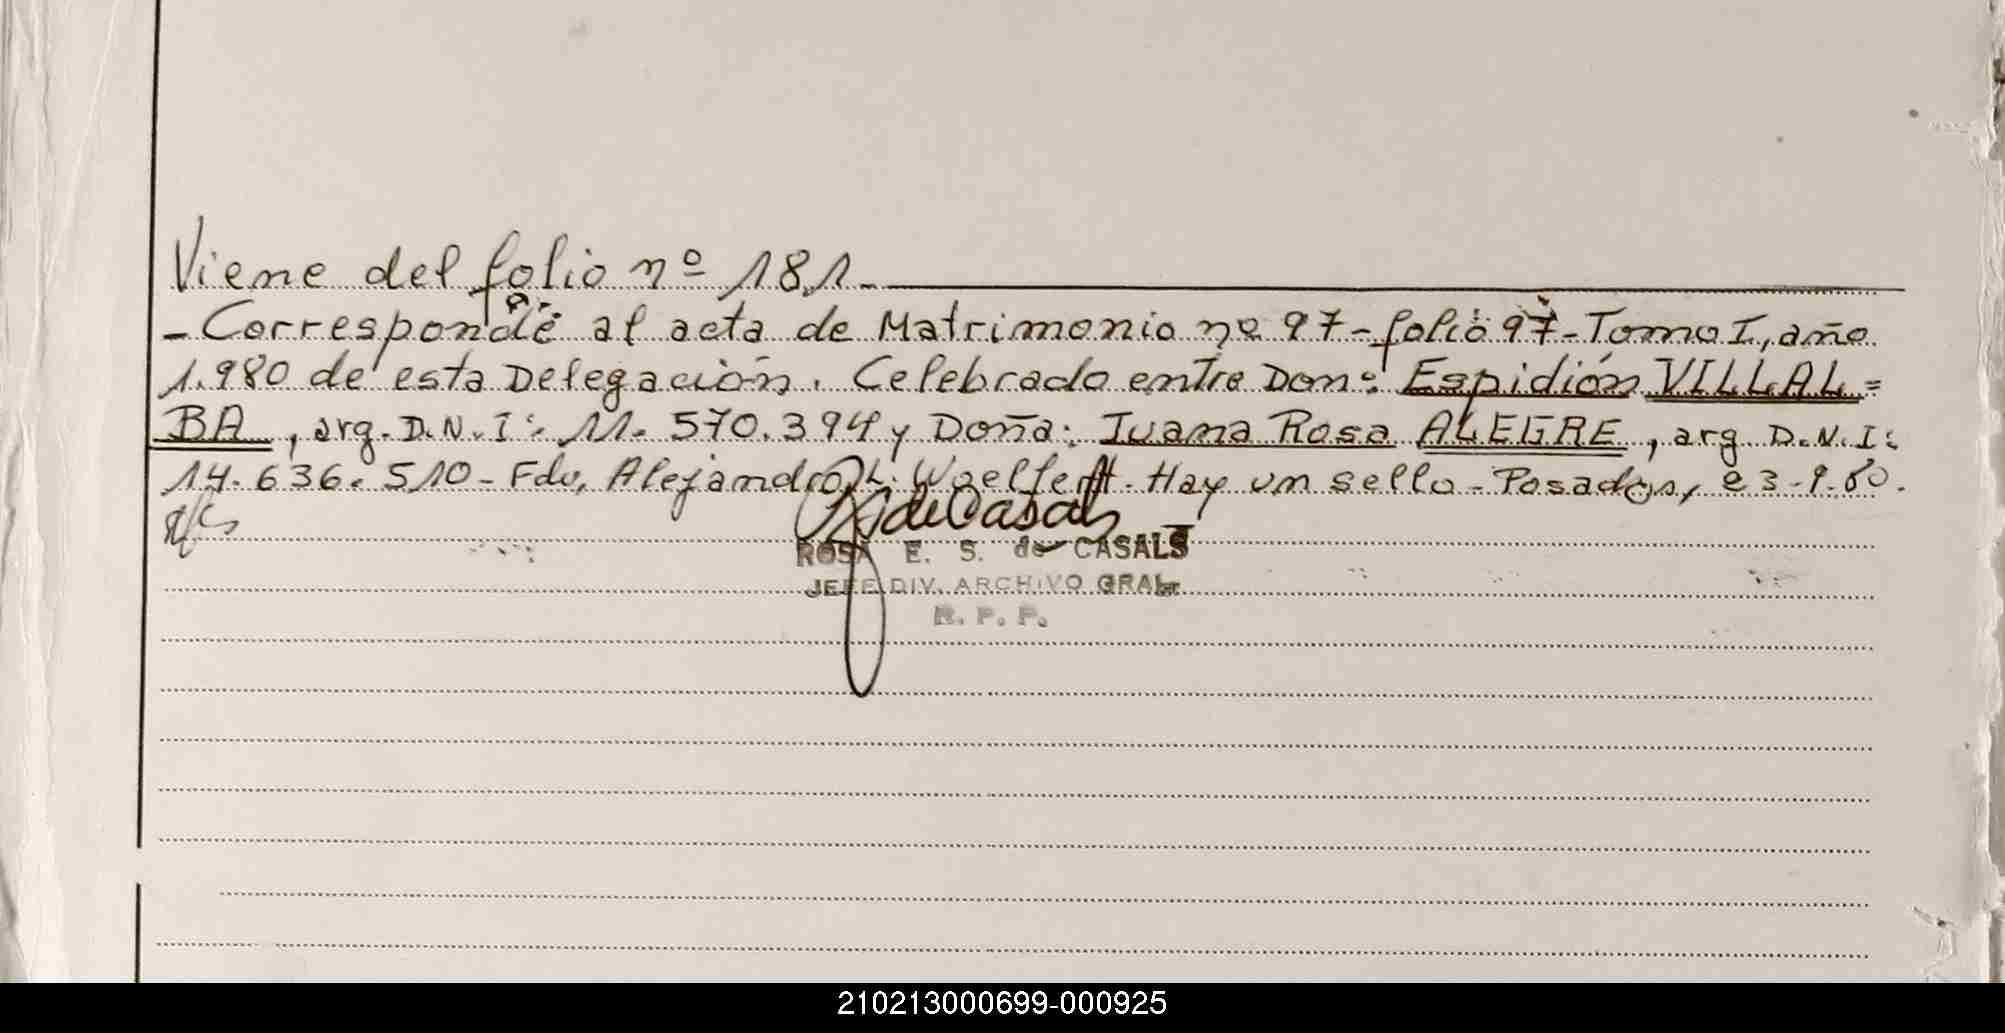 Viene del folio nº 181.
- Corresponde al acta de Matrimonio nº 97 - folio 97 - Tomo I, año
1.980 de esta Delegación. Celebrado entre Don: Espidión VILLAL=
BA, arg. D.N.I: 11.570.394 y Doña: Juana Rosa ALEGRE, arg D.N.I:
14.636.510 - Fdo. Alejandro L. Woelfert. Hay un sello - Posadas, 23-9-80.
R de Casals
ROSA E. S. de CASALS
JEFE DIV. ARCHIVO GRAL.
R. P. P.
210213000699-000925